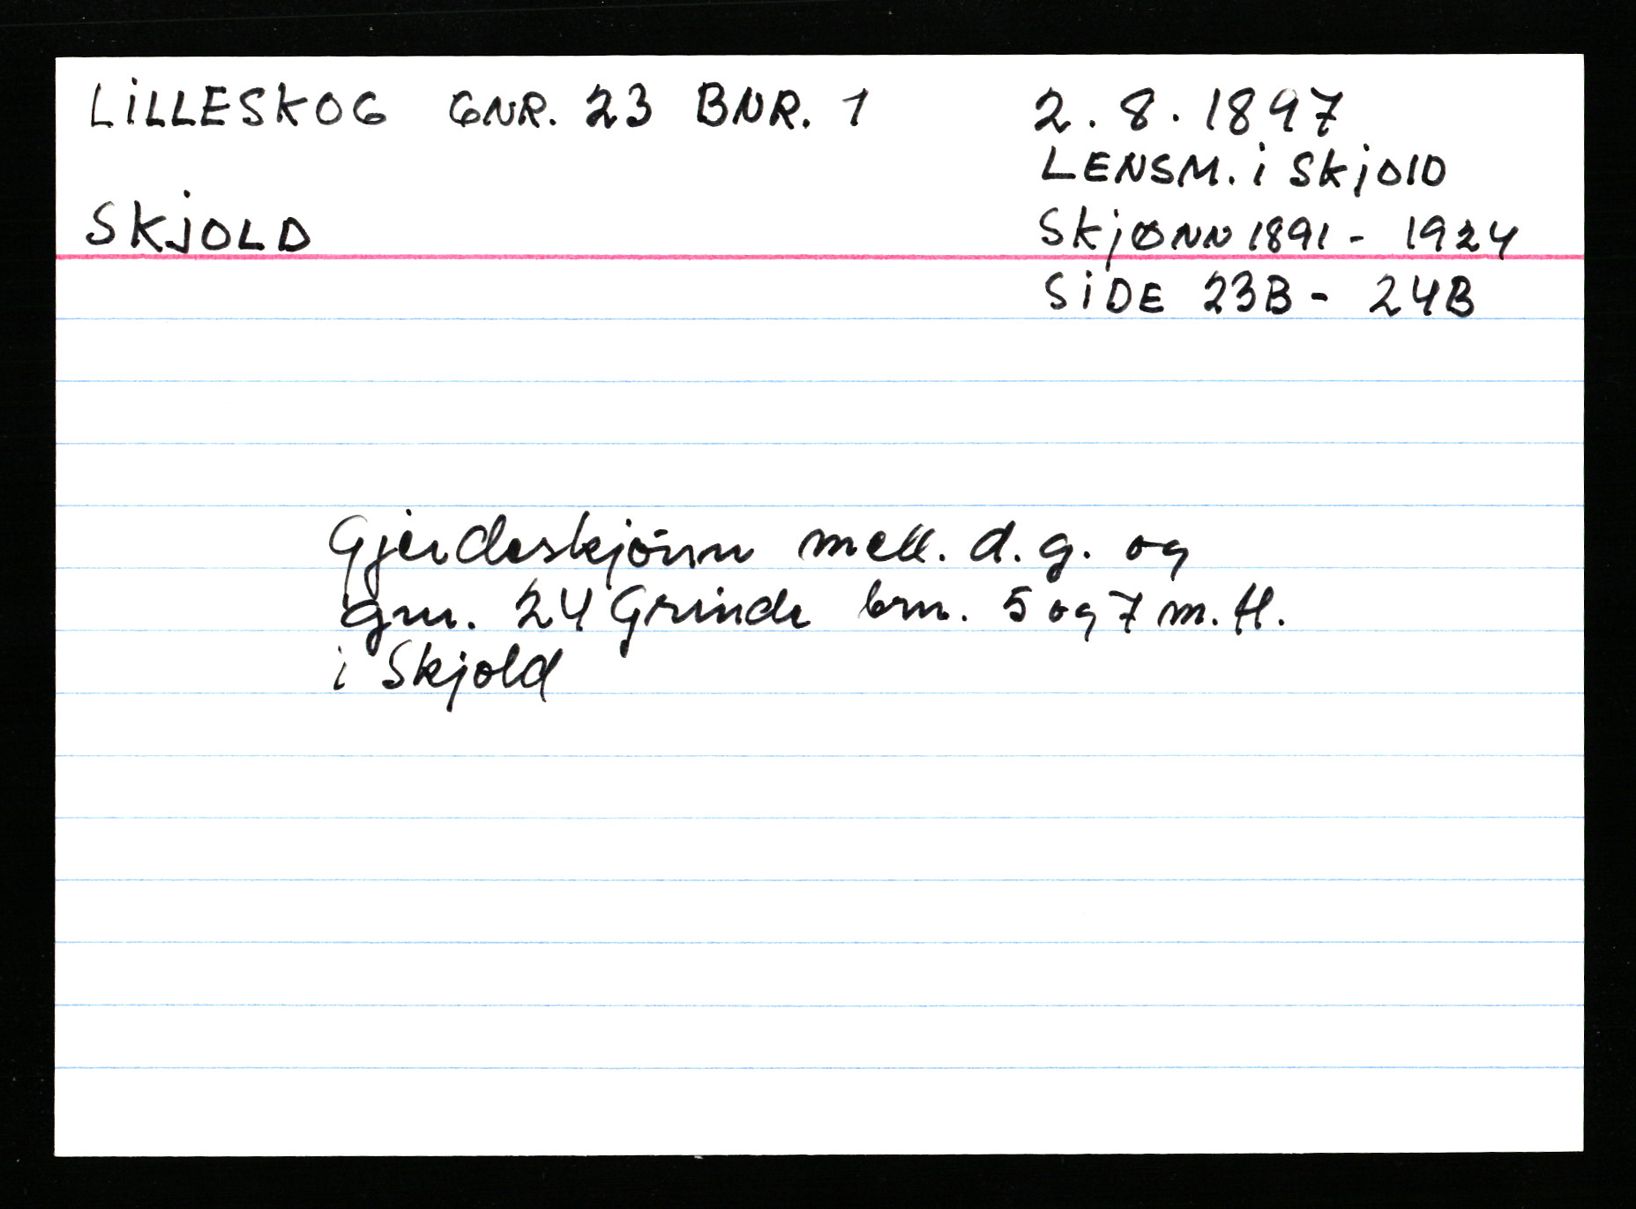 LILLESKOG GNR. 23 BNR. 1
SKJOLD
2.8.1897
LENSM. i SKJOLD
SKJØNN 1891 - 1924
SIDE 23B - 24B
Gjerdeskjønn mell. d. g. og
gnr. 24 Grinde bnr. 5 og 7 m. fl.
i Skjold